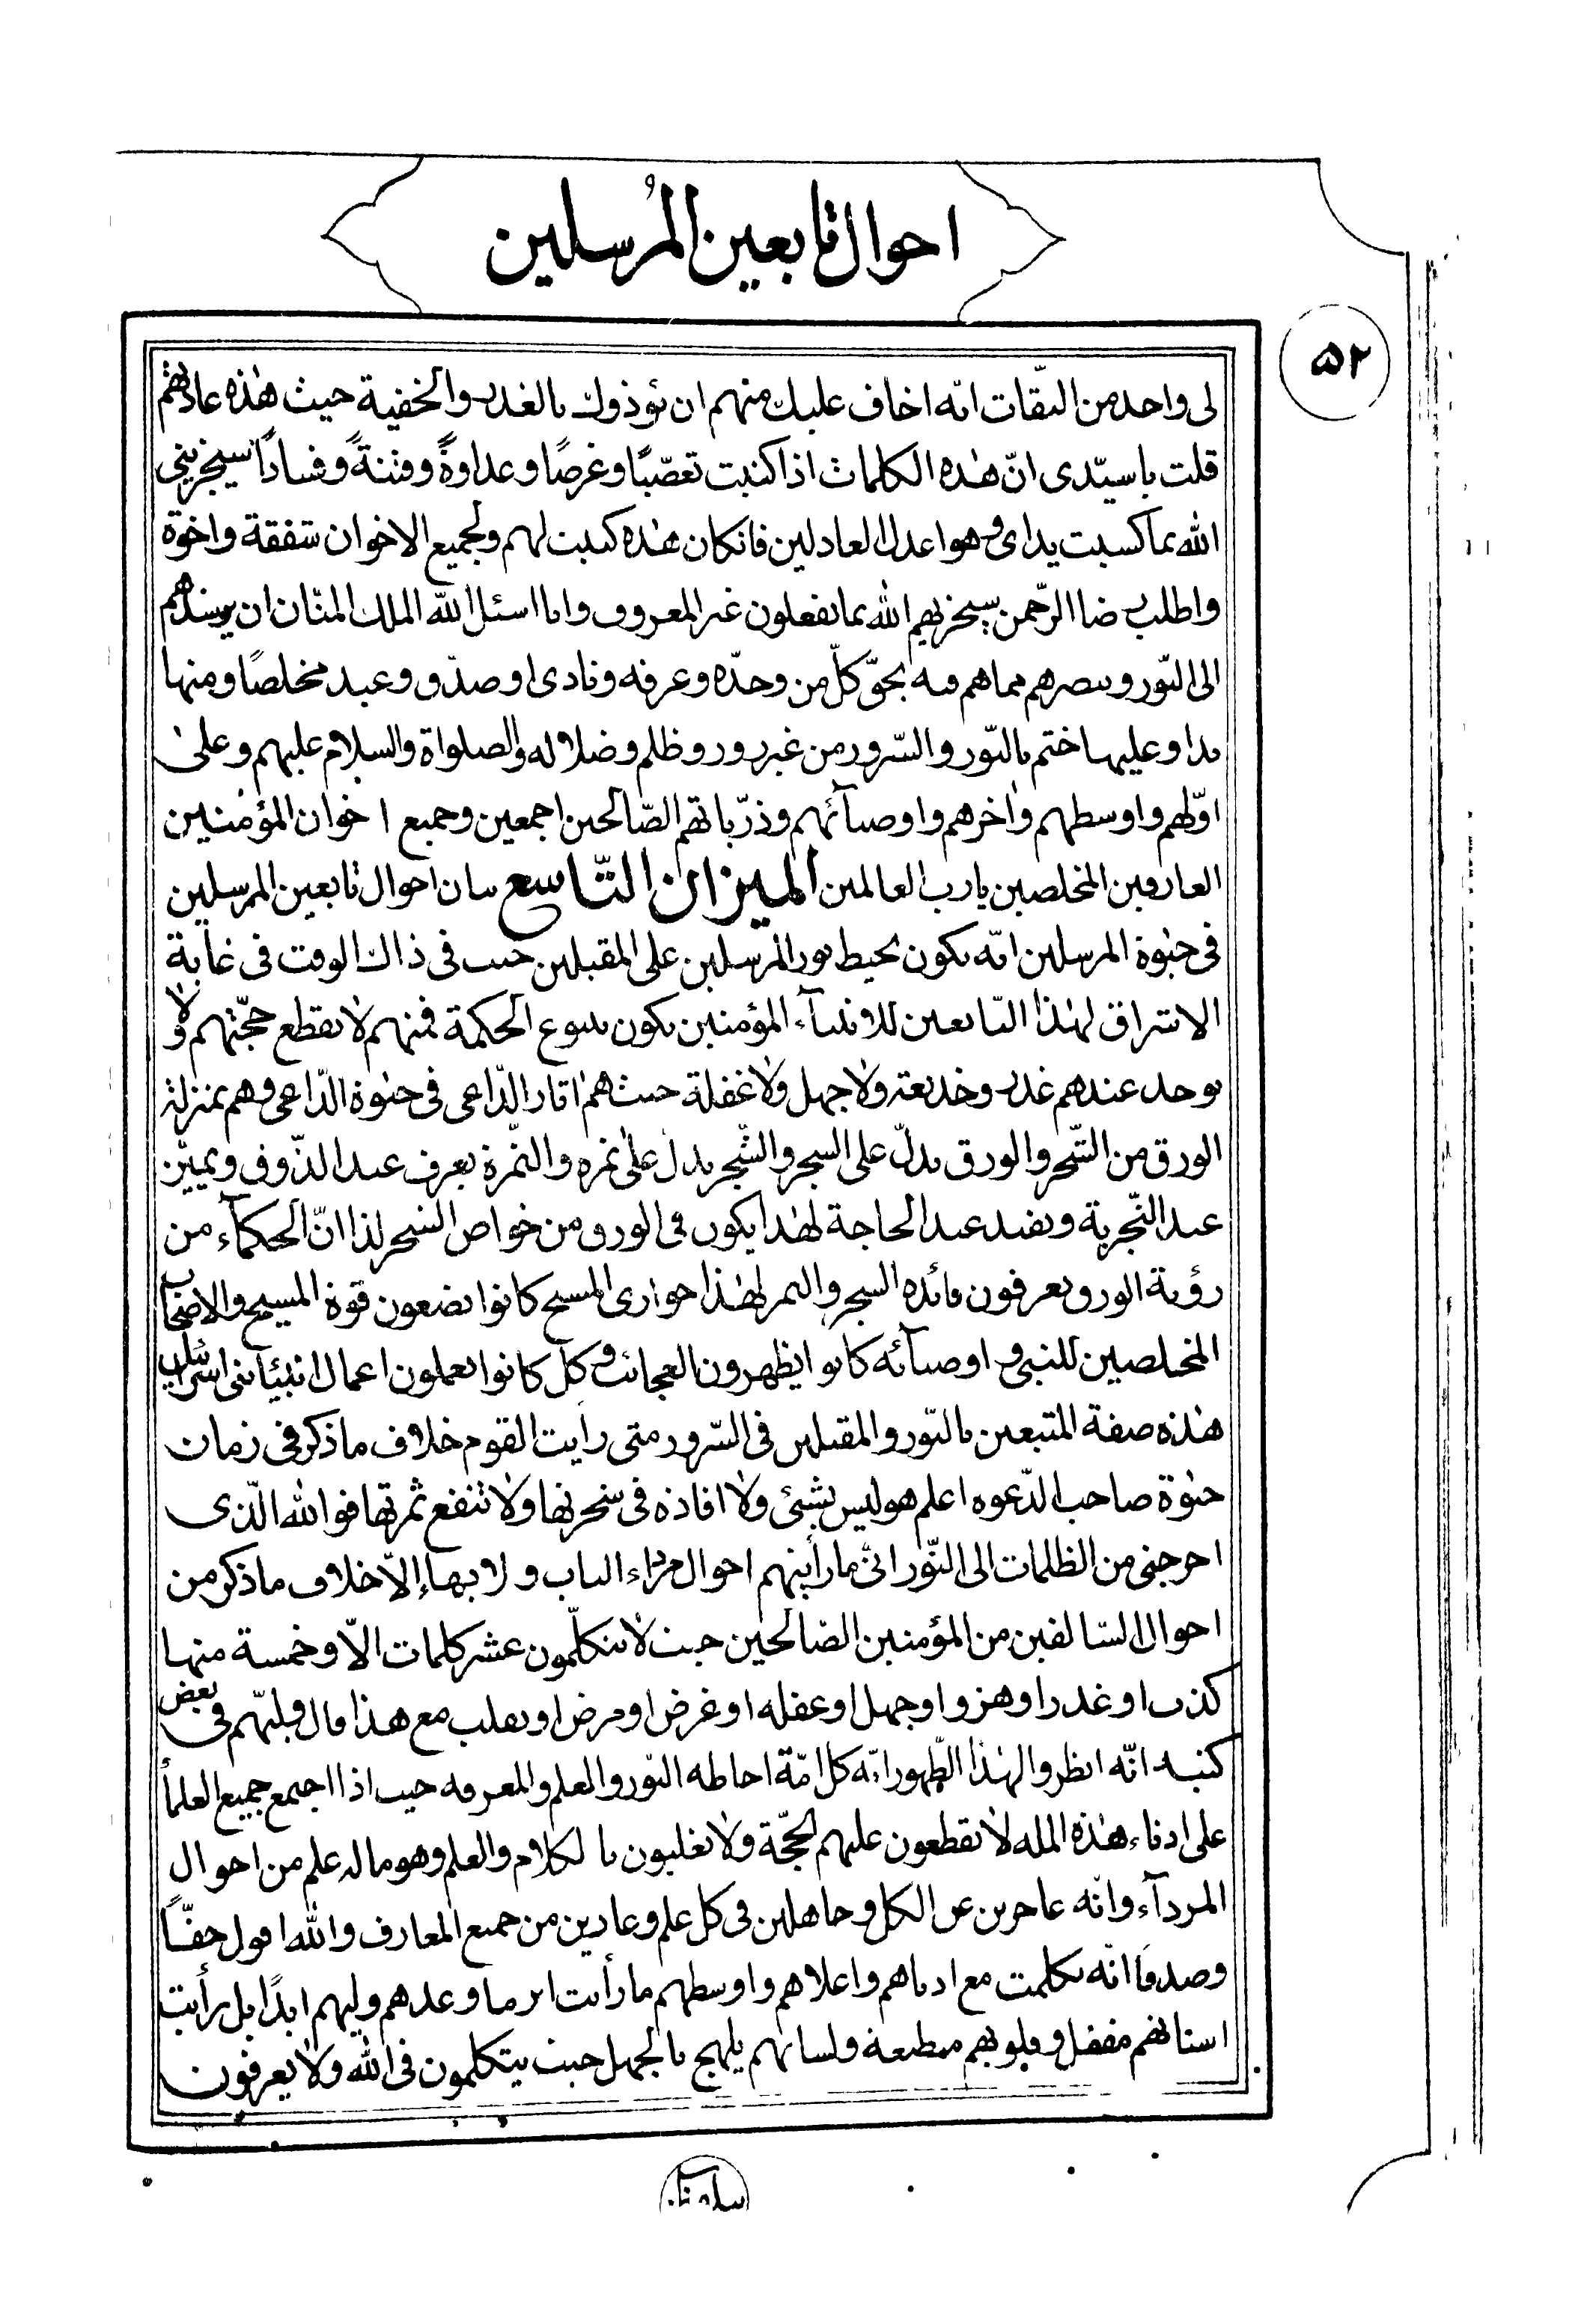 احوال تابعين المُرسلين
٥٢
لى واحد من الثقات انّه اخاف عليك منهم ان يؤذوك بالغدر والخفية حيث هذه عادتهم
قلت يا سيّدى انّ هذه الكلمات اذا كتبت تعصّبًا وغرضًا وعداوةً وفتنةً وفسادًا سيجزينى
الله بما كسبت يداى وهو اعدل العادلين فانكان هذه كتبت لهم ولجميع الاخوان شفقة واخوّة
واطلب رضا الرّحمن سيجزيهم الله بما يفعلون غير المعروف وانا اسئل الله الملك المنّان ان يرشدهم
الى النّور ويبصرهم مما هم فيه بحقّ كلّ من وحدّه وعرفه ونادى اوصدّق وعبد مخلصًا ومنها
بدا وعليها ختم بالنّور والسّرور من غير زور وظلم وضلاله والصلواة والسلام عليهم وعلى
اوّلهم واوسطهم واخرهم واوصيآئهم وذرّياتهم الصّالحين اجمعين وجميع اخوان المؤمنين
العارفين المخلصين يا رب العالمين الميزان التّاسع بيان احوال تابعين المرسلين
فى حيٰوة المرسلين انّه يكون يحيط نور المرسلين على المقبلين حيث فى ذاك الوقت فى غاية
الاشراق لهٰذا التابعين للانبيآء المؤمنين يكون ينبوع الحكمة فمنهم لا يقطع حجّتهم ولا
يوجد عندهم غدر وخديعته ولا جهل ولا غفلة حيث هم اثار الدّاعى فى حيٰوة الدّاعى وهم بمنزلة
الورق من الشّجر والورق يدلّ على الشجر والشّجر يدل على ثمره والثّمرة يعرف عند الذّوق ويميّز
عند التّجربة ويفيد عند الحاجة لهٰذا يكون فى الورق من خواص الشجر لذا انّ الحكمآء من
رؤية الورق يعرفون فائده الشجر والثمر لهٰذا حوارى المسيح كانوا يضعون قوة المسيح والاصحاب
المخلصين للنبى واوصيآئه كانوا يظهرون العجائب وكل كانوا يعملون اعمال انبيآء بنى اسرائيل
هٰذه صفة المتبعين بالنّور والمقبلين فى السّرور متى رأيت القوم خلاف ما ذكر فى زمان
حيٰوة صاحب الدّعوه اعلم هو ليس بشيئ ولا افاده فى شجرتها ولا تنفع ثمرتها فوالله الّذى
اخرجنى من الظلمات الى النّور انّى ما رأيتهم احوال مرداء الباب ولا بها إلّا خلاف ما ذكر من
احوال السّالفين من المؤمنين الصّالحين حيث لا يتكلّمون عشر كلمات الّا وخمسة منها
كذب او غدر او هزو او جهل او غفله او غرض او مرض او يقلب مع هٰذا قال وليّهم فى بعض
كتبه انّه انظروا لهٰذا الظّهور انّه كل امّة احاطه النّور والعلم والمعرفه حيث اذا اجتمع جميع العلمآ
على ادناء هٰذه المله لا يقطعون عليهم الحجّة ولا يغلبون بالكلام والعلم وهو ماله علم من احوال
المردآء وانّه عاجزين عن الكل وجاهلين فى كل علم وعادين من جميع المعارف والله اقول حقّاً
وصدقًا انّه تكلمت مع ادناهم واعلاهم واوسطهم ما رأيت اثر ما وعدهم وليهم ابدًا بل رأيت
اسنانهم مففل وقلوبهم مطبعة ولسانهم يلهج بالجهل حيث يتكلمون فى الله ولا يعرفون